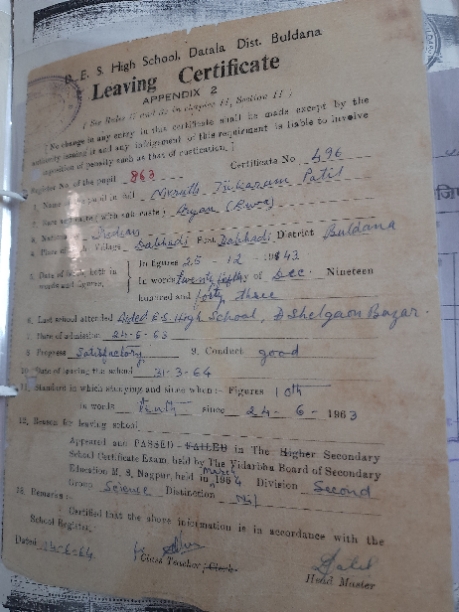 D. E. S. High School, Datala Dist. Buldana
Leaving Certificate
APPENDIX 2
( See Rules 17 and in chapter II, Section II )
[ No change in any entry in this certificate shall be made except by the
authority issuing it and any infringement of this requirement is liable to involve
imposition of penalty such as that of rustication. ]
Register No. of the pupil 863 Certificate No 496
1. Name of the pupil in full Tukaram Patil
2. Race and caste with sub caste:
3. Nationality Indian
4. Place of Village Post District Buldana
5. Date of birth, both in words and figures, In figures 25 - 12 - 1943
In words twenty fifths of Dec. Nineteen
hundred and forty three
6. Last school attended E.S. High School, Shelgaon Bazar.
7. Date of admission 24-6-63
8. Progress Satisfactory 9. Conduct good
10. Date of leaving the school 31-3-64
11. Standard in which studying and since when :- Figures 10th
in words Tenth since 24 - 6 - 1963
12. Reason for leaving school
Appeared and PASSED - FAILED in The Higher Secondary
School Certificate Exam. held by The Vidarbha Board of Secondary
Education M. S. Nagpur, held in March 1964 Division Second
Group Science Distinction Nil
13. Remarks :
Certified that the above information is in accordance with the
School Register.
Dated
Class Teacher, Clerk. Head Master